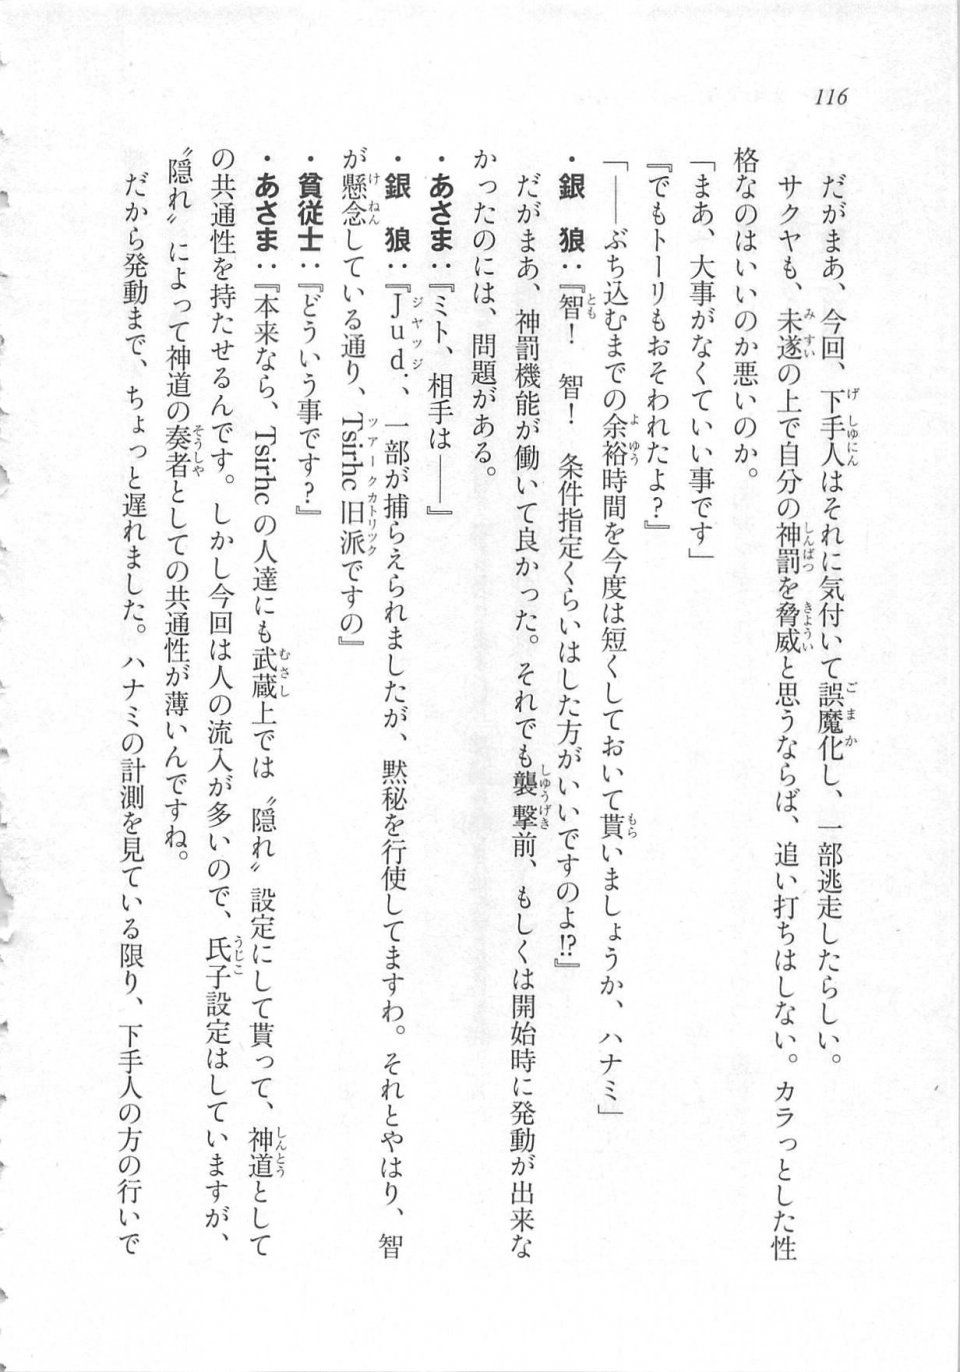 116
だがまあ、今回、下手人はそれに気付いて誤魔化し、一部逃走したらしい。
サクヤも、未遂の上で自分の神罰を脅威と思うならば、追い打ちはしない。カラっとした性
格なのはいいのか悪いのか。
「まあ、大事がなくていい事です」
『でもトーリもおそわれたよ?』
「——ぶち込むまでの余裕時間を今度は短くしておいて貰いましょうか、ハナミ」
・銀 狼:『智! 智! 条件指定くらいはした方がいいですのよ!?』
だがまあ、神罰機能が働いて良かった。それでも襲撃前、もしくは開始時に発動が出来な
かったのには、問題がある。
・あさま:『ミト、相手は——』
・銀 狼:『Jud.、一部が捕らえられましたが、黙秘を行使してますわ。それとやはり、智
が懸念している通り、Tsirhc旧派ですの』
・貧従士:『どういう事です?』
・あさま:『本来なら、Tsirhcの人達にも武蔵上では〝隠れ〟設定にして貰って、神道として
の共通性を持たせるんです。しかし今回は人の流入が多いので、氏子設定はしていますが、
〝隠れ〟によって神道の奏者としての共通性が薄いんですね。
だから発動まで、ちょっと遅れました。ハナミの計測を見ている限り、下手人の方の行いで